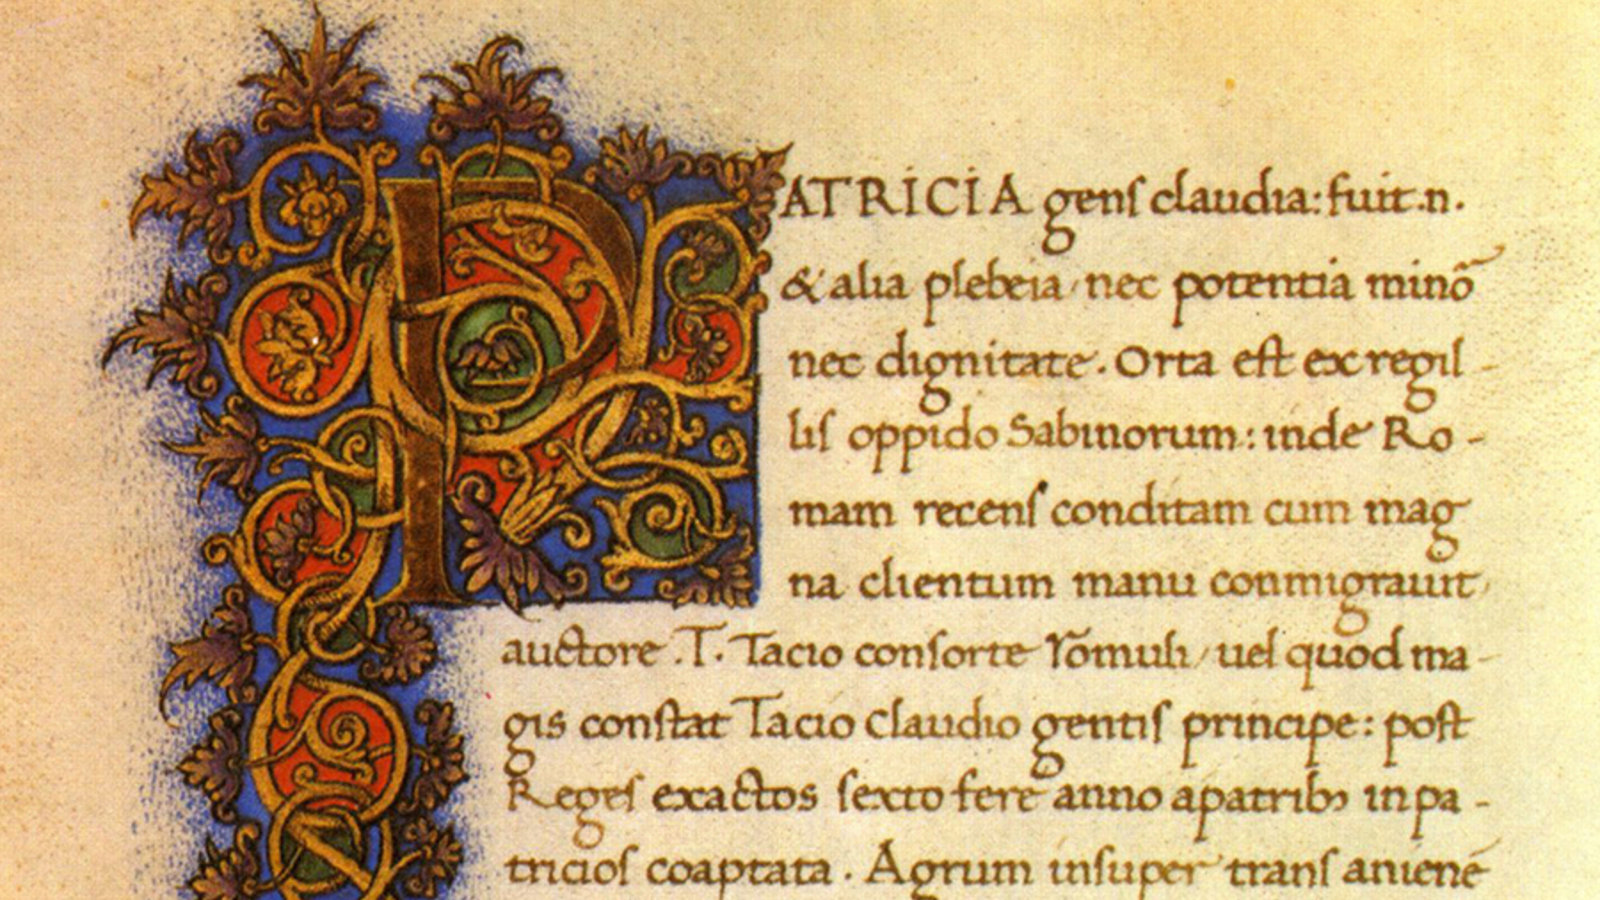 PATRICIA genſ claudia: fuit .n.
& alia plebeia nec potentia minõ
nec dignitate. Orta eſt ex regil-
liſ oppido Sabinorum: inde Ro-
mam recenſ conditam cum mag
na clientum manu conmigrauit
auctore .T. Tacio conſorte Romuli, uel quod ma-
gis conſtat Tacio Claudio gentiſ principe: poſt
Regeſ exactos ſexto fere anno a patribꝫ in pa-
tricioſ coaptata. Agrum inſuper tranſ anienẽ